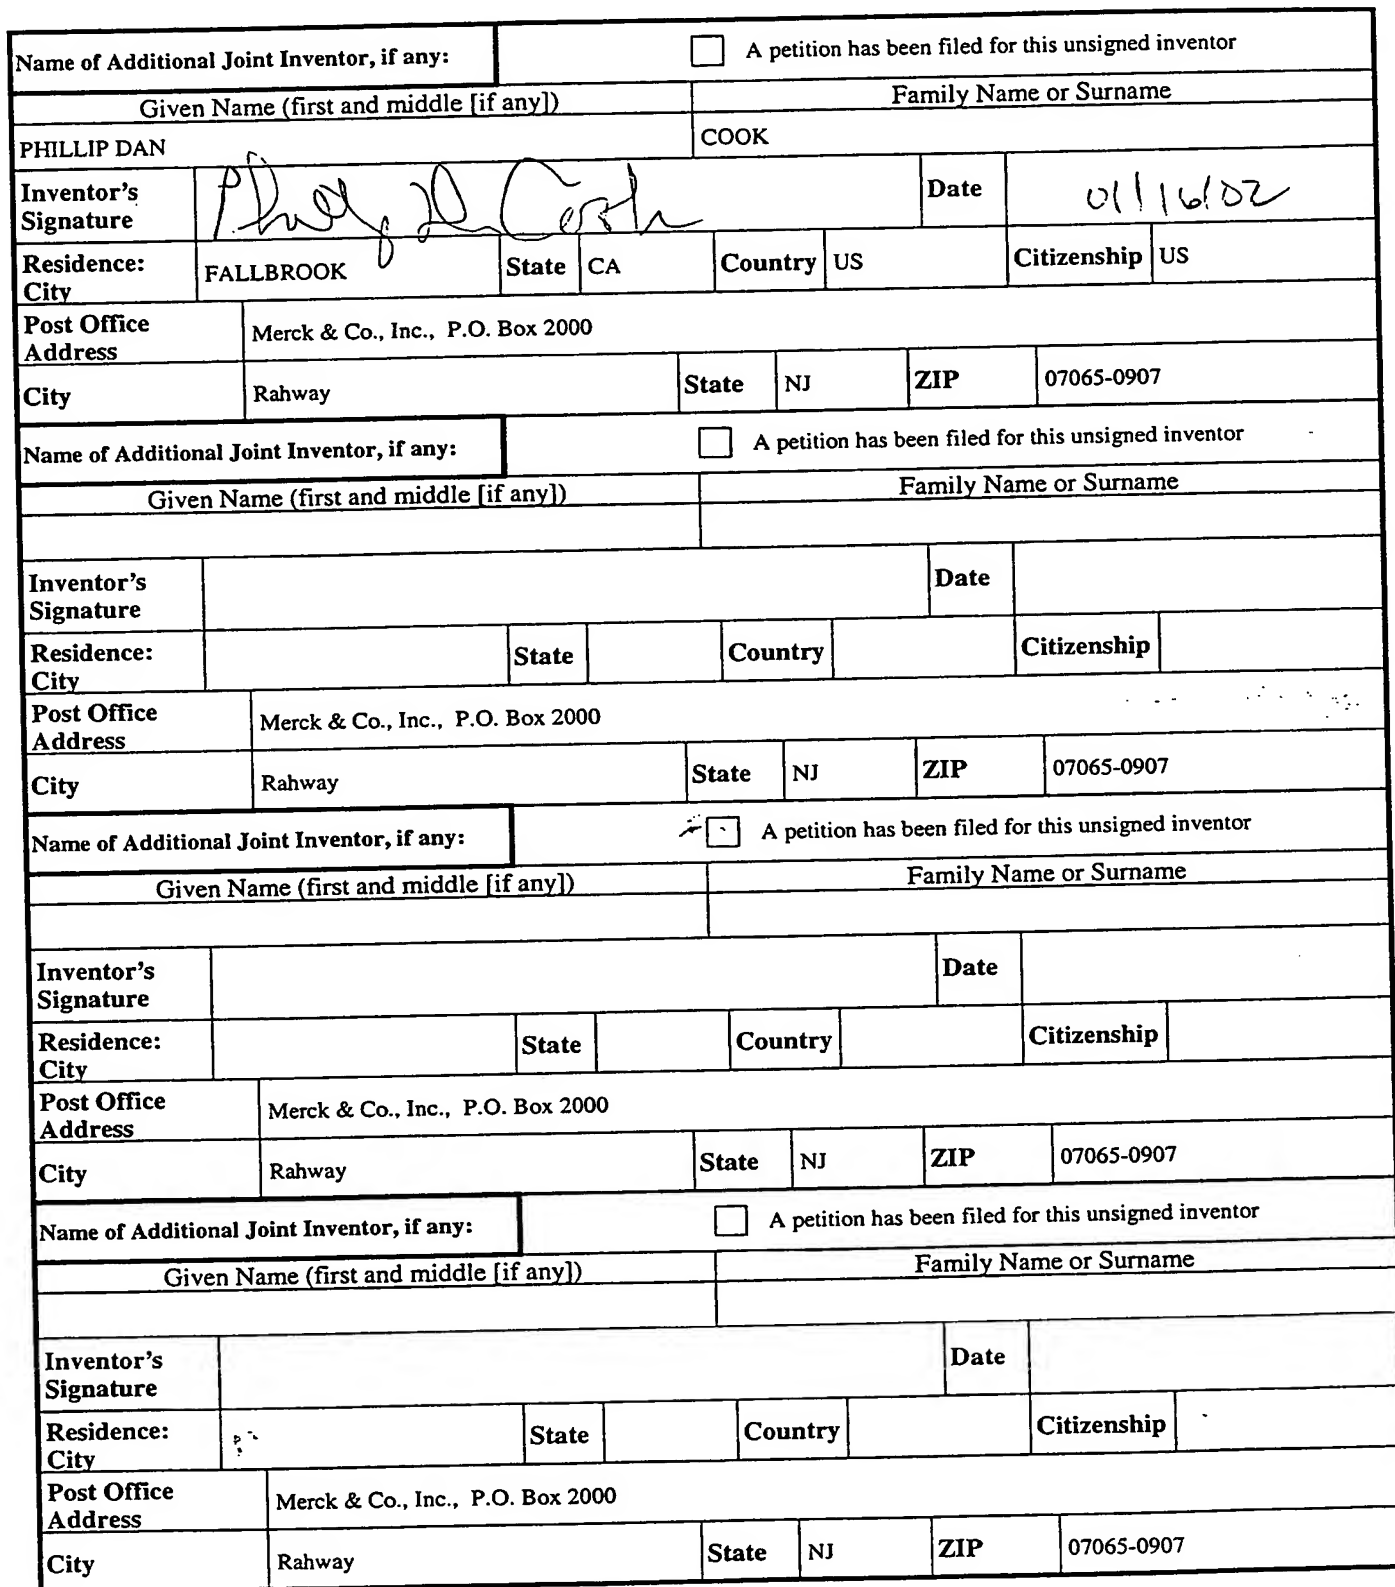 Name of Additional Joint Inventor, if any: A petition has been filed for this unsigned inventor
Given Name (first and middle [if any]) Family Name or Surname
PHILLIP DAN COOK
Inventor's Signature Phillip Dan Cook Date 01/16/02
Residence: City FALLBROOK State CA Country US Citizenship US
Post Office Address Merck & Co., Inc., P.O. Box 2000
City Rahway State NJ ZIP 07065-0907
Name of Additional Joint Inventor, if any: A petition has been filed for this unsigned inventor
Given Name (first and middle [if any]) Family Name or Surname
Inventor's Signature Date
Residence: City State Country Citizenship
Post Office Address Merck & Co., Inc., P.O. Box 2000
City Rahway State NJ ZIP 07065-0907
Name of Additional Joint Inventor, if any: A petition has been filed for this unsigned inventor
Given Name (first and middle [if any]) Family Name or Surname
Inventor's Signature Date
Residence: City State Country Citizenship
Post Office Address Merck & Co., Inc., P.O. Box 2000
City Rahway State NJ ZIP 07065-0907
Name of Additional Joint Inventor, if any: A petition has been filed for this unsigned inventor
Given Name (first and middle [if any]) Family Name or Surname
Inventor's Signature Date
Residence: City State Country Citizenship
Post Office Address Merck & Co., Inc., P.O. Box 2000
City Rahway State NJ ZIP 07065-0907